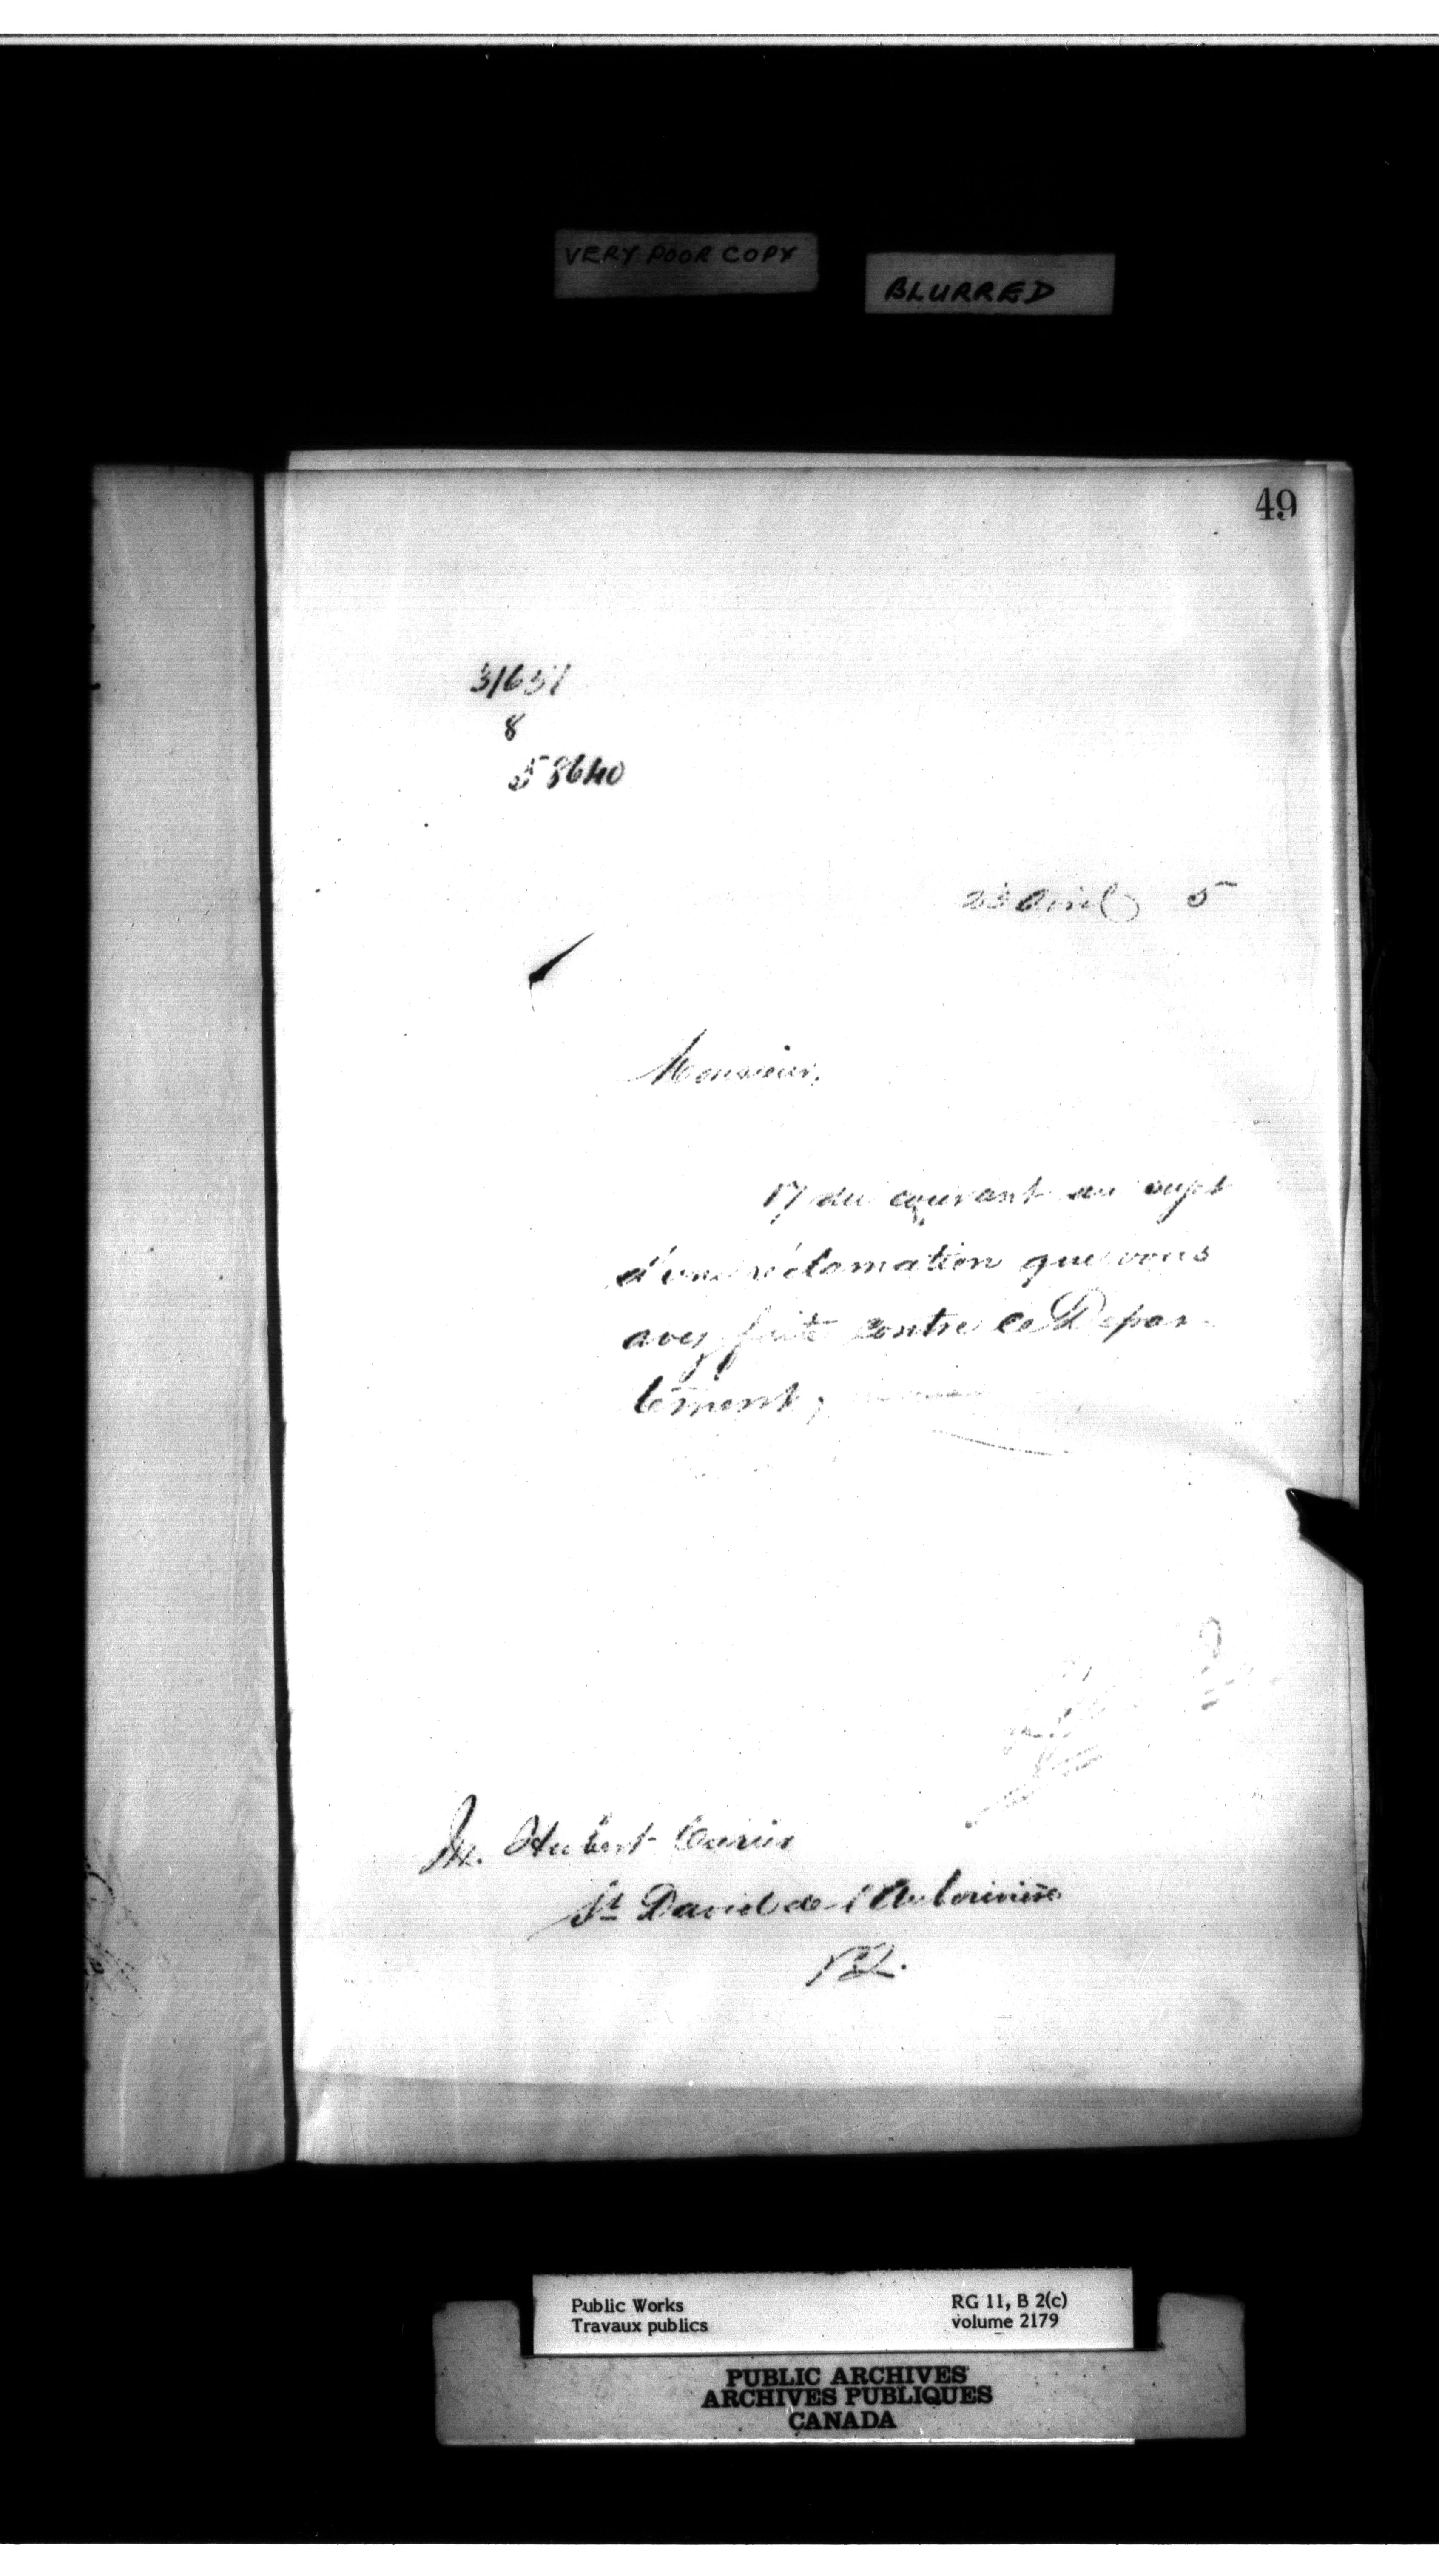 VERY POOR COPY
BLURRED
49
31651
8
58640
23 Avril 5
Monsieur,
17 du courant au sujet
d'une réclamation que vous
avez faite contre ce Depar-
tement,
M. Hubert
St David de l'Auberivière
P.Q.
Public Works
Travaux publics
RG 11, B 2(c)
volume 2179
PUBLIC ARCHIVES
ARCHIVES PUBLIQUES
CANADA